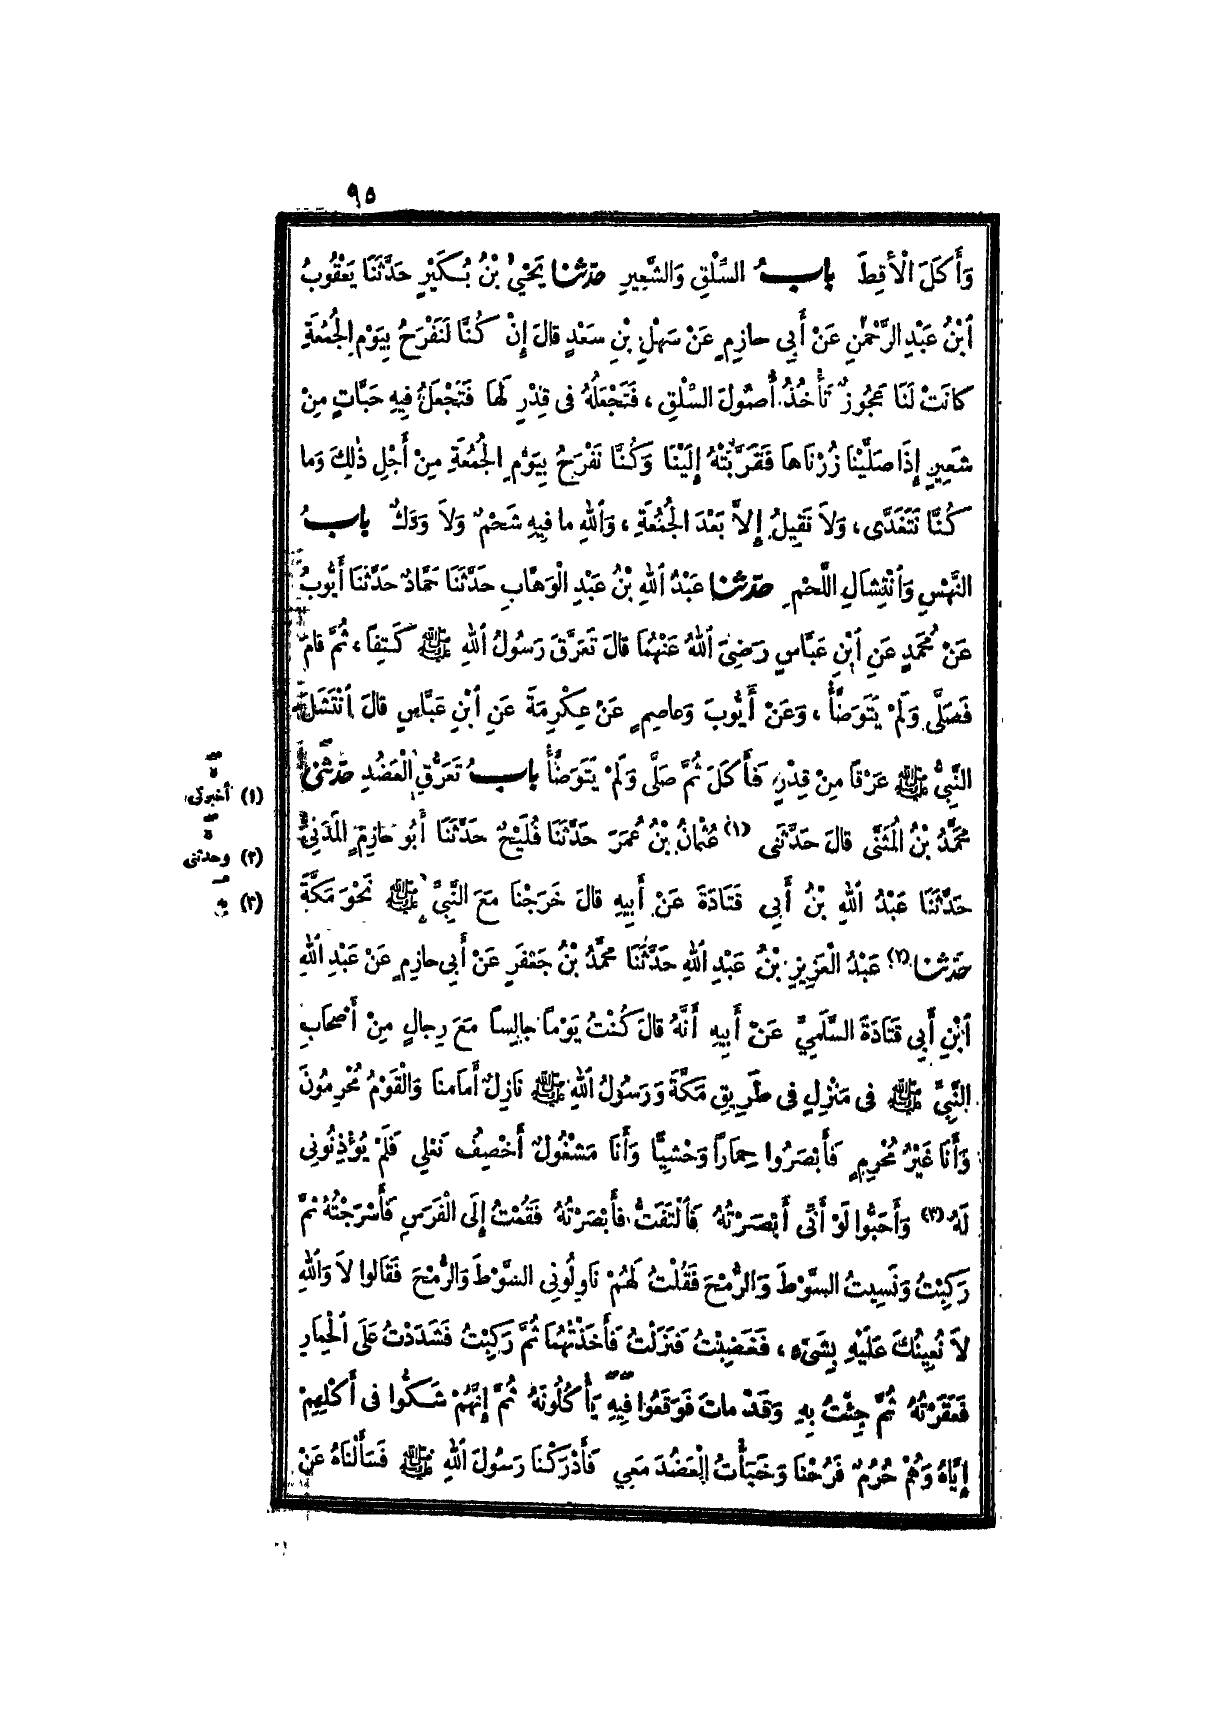 ٩٥
وَأَكَلَ الْأَقِطَ بابُ السِّلْقِ وَالشَّعِيرِ حدثنا يَحْيَى بْنُ بُكَيْرٍ حَدَّثَنَا يَعْقُوبُ
ٱبْنُ عَبْدِ الرَّحْمٰنِ عَنْ أَبِي حازِمٍ عَنْ سَهْلِ بْنِ سَعْدٍ قالَ إِنْ كُنَّا لَنَفْرَحُ بِيَوْمِ الْجُمُعَةِ
كانَتْ لَنَا عَجُوزٌ تَأْخُذُ أُصُولَ السِّلْقِ ، فَتَجْعَلُهُ فى قِدْرٍ لَهَا فَتَجْعَلُ فِيهِ حَبَّاتٍ مِنْ
شَعِيرٍ إِذَا صَلَّيْنَا زُرْنَاهَا فَقَرَّبَتْهُ إِلَيْنَا وَكُنَّا نَفْرَحُ بِيَوْمِ الْجُمُعَةِ مِنْ أَجْلِ ذٰلِكَ وَما
كُنَّا نَتَغَدَّى ، وَلاَ نَقِيلُ إِلاَّ بَعْدَ الْجُمُعَةِ ، وَٱللهِ ما فِيهِ شَحْمٌ وَلاَ وَدَكٌ بابُ
النَّهْسِ وَٱنْتِشَالِ اللَّحْمِ حدثنا عَبْدُ ٱللهِ بْنُ عَبْدِ الْوَهَّابِ حَدَّثَنَا حَمَّادٌ حَدَّثَنَا أَيُّوبُ
عَنْ مُحَمَّدٍ عَنِ ٱبْنِ عَبَّاسٍ رَضِىَ ٱللهُ عَنْهُمَا قالَ تَعَرَّقَ رَسُولُ ٱللهِ ﷺ كَتِفًا ، ثُمَّ قامَ
فَصَلَّى وَلَمْ يَتَوَضَّأْ ، وَعَنْ أَيُّوبَ وَعاصِمٍ عَنْ عِكْرِمَةَ عَنِ ٱبْنِ عَبَّاسٍ قالَ ٱنْتَشَلَ
النَّبِىُّ ﷺ عَرْقًا مِنْ قِدْرٍ ، فَأَكَلَ ثُمَّ صَلَّى وَلَمْ يَتَوَضَّأْ بابُ تَعَرُّقِ الْعَضُدِ حدثنى
مُحَمَّدُ بْنُ الْمُثَنَّى قالَ حَدَّثَنِى (١) عُثْمانُ بْنُ عُمَرَ حَدَّثَنَا فُلَيْحٌ حَدَّثَنَا أَبُو حازِمٍ الْمَدَنِىُّ
حَدَّثَنَا عَبْدُ ٱللهِ بْنُ أَبِى قَتَادَةَ عَنْ أَبِيهِ قالَ خَرَجْنَا مَعَ النَّبِىِّ ﷺ نَحْوَ مَكَّةَ
حدثنا (٢) عَبْدُ الْعَزِيزِ بْنُ عَبْدِ ٱللهِ حَدَّثَنَا مُحَمَّدُ بْنُ جَعْفَرٍ عَنْ أَبِى حازِمٍ عَنْ عَبْدِ ٱللهِ
ٱبْنِ أَبِى قَتَادَةَ السَّلَمِىِّ عَنْ أَبِيهِ أَنَّهُ قالَ كُنْتُ يَوْمًا جالِسًا مَعَ رِجالٍ مِنْ أَصْحَابِ
النَّبِىِّ ﷺ فى مَنْزِلٍ فى طَرِيقِ مَكَّةَ وَرَسُولُ ٱللهِ ﷺ نَازِلٌ أَمامَنَا وَالْقَوْمُ مُحْرِمُونَ
وَأَنَا غَيْرُ مُحْرِمٍ فَأَبْصَرُوا حِمَارًا وَحْشِيًّا وَأَنَا مَشْغُولٌ أَخْصِفُ نَعْلِى فَلَمْ يُؤْذِنُونِى
لَهُ (٣) وَأَحَبُّوا لَوْ أَنِّى أَبْصَرْتُهُ فَٱلْتَفَتُّ فَأَبْصَرْتُهُ فَقُمْتُ إِلَى الْفَرَسِ فَأَسْرَجْتُهُ ثُمَّ
رَكِبْتُ وَنَسِيتُ السَّوْطَ وَالرُّمْحَ فَقُلْتُ لَهُمْ نَاوِلُونِى السَّوْطَ وَالرُّمْحَ فَقَالُوا لاَ وَٱللهِ
لاَ نُعِينُكَ عَلَيْهِ بِشَىْءٍ ، فَغَضِبْتُ فَنَزَلْتُ فَأَخَذْتُهُمَا ثُمَّ رَكِبْتُ فَشَدَدْتُ عَلَى الْحِمَارِ
فَعَقَرْتُهُ ثُمَّ جِئْتُ بِهِ وَقَدْ ماتَ فَوَقَعُوا فِيهِ يَأْكُلُونَهُ ثُمَّ إِنَّهُمْ شَكُّوا فى أَكْلِهِمْ
إِيَّاهُ وَهُمْ حُرُمٌ فَرُحْنَا وَخَبَأْتُ الْعَضُدَ مَعِى فَأَدْرَكْنَا رَسُولَ ٱللهِ ﷺ فَسَأَلْنَاهُ عَنْ
(١) أخبرنى
(٢) وحدثنى
(٣) به